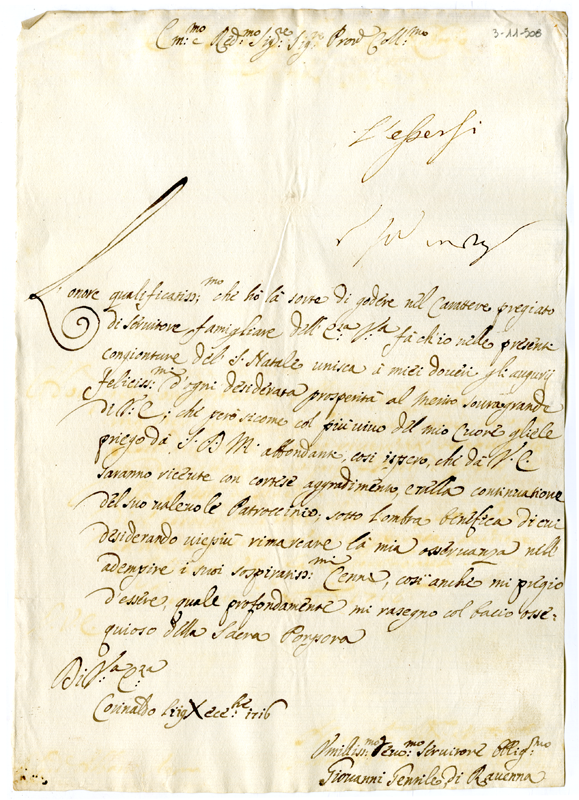 3-11-308
Em:mo e Red:mo Sig:re Sig:re Pron Coll:mo
L'essersi
L'onore qualificatiss:mo che hò la sorte di godere nel Carattere pregiato
di Servitore famigliare dell' Vra fà ch'io nelle presenti
congionture del S. Natale unisca a miei doveri gl'augurij
feliciss:mi d'ogni desiderata prosperità al merito souragrande
di V: E; che però sicome col più vivo del mio Cuore gliele
priego da S. D. M. abbondante, così spero, che da V. E
saranno ricevute con cortese aggradimento, e nella continuatione
del suo valevole Patroccinio, sotto l'ombra benefica di cui
desiderando uiepiù rimarcare la mia osservanza nelle
adempire i suoi sospiratiss:mi Cenni, così anche mi pregio
d'essere, quale profondamente mi rasegno col bacio osse-
quioso della Sacra Porpora
Di V:ra
Corinaldo li 19 Xcc:bre 1716
Umiliss:mo Devo:mo Servitore obblig:mo
Giovanni Gentile di Ravenna